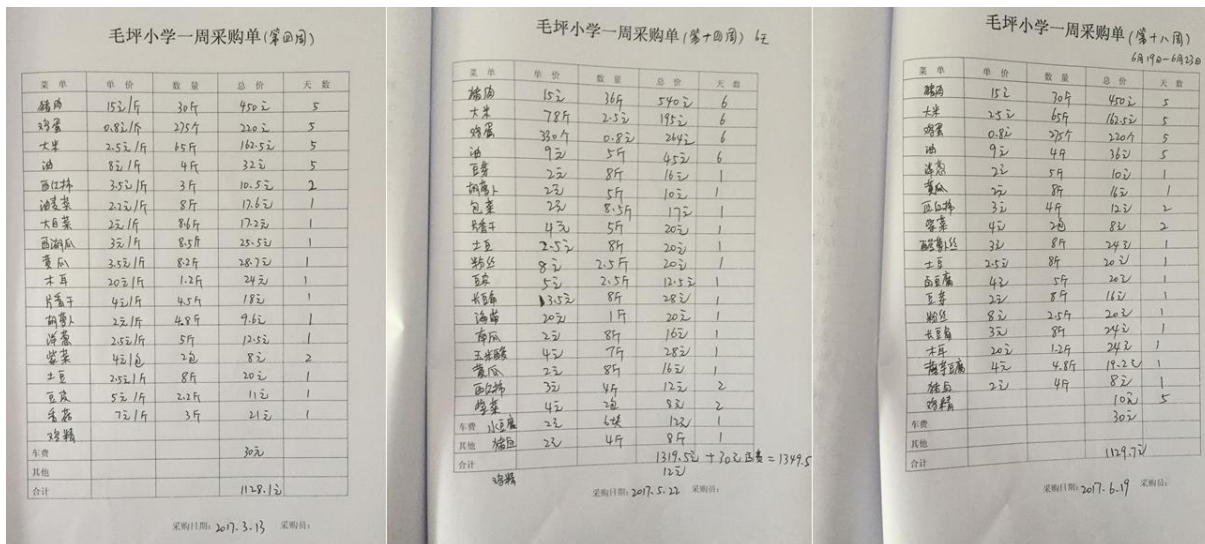 毛坪小学一周采购单(第四周)
菜单 单价 数量 总价 天数
猪肉 15元/斤 30斤 450元 5
鸡蛋 0.8元/个 275个 220元 5
大米 2.5元/斤 65斤 162.5元 5
油 8元/斤 4斤 32元 5
西红柿 3.5元/斤 3斤 10.5元 2
油麦菜 2.2元/斤 8斤 17.6元 1
大白菜 2元/斤 8.6斤 17.2元 1
西湖瓜 3元/斤 8.5斤 25.5元 1
黄瓜 3.5元/斤 8.2斤 28.7元 1
木耳 20元/斤 1.2斤 24元 1
片香干 4元/斤 4.5斤 18元 1
胡萝卜 2元/斤 4.8斤 9.6元 1
洋葱 2.5元/斤 5斤 12.5元 1
紫菜 4元/包 2包 8元 2
土豆 2.5元/斤 8斤 20元 1
豆皮 5元/斤 2.2斤 11元 1
香菇 7元/斤 3斤 21元 1
鸡精
车费 30元
其他
合计 1128.1元
采购日期:2017.3.13 采购员:
毛坪小学一周采购单(第十四周) 6天
菜单 单价 数量 总价 天数
猪肉 15元 36斤 540元 6
大米 78斤 2.5元 195元 6
鸡蛋 330个 0.8元 264元 6
油 9元 5斤 45元 6
豆芽 2元 8斤 16元 1
胡萝卜 2元 5斤 10元 1
包菜 2元 8.5斤 17元 1
片香干 4元 5斤 20元 1
土豆 2.5元 8斤 20元 1
粉丝 8元 2.5斤 20元 1
豆皮 5元 2.5斤 12.5元 1
长豆角 3.5元 8斤 28元 1
海带 20元 1斤 20元 1
南瓜 2元 8斤 16元 1
玉米 4元 7斤 28元 1
黄瓜 2元 8斤 16元 1
西红柿 3元 4斤 12元 2
紫菜 4元 2包 8元 2
车费 水豆腐 2元 6块 12元 1
其他 猪血 2元 4斤 8斤 1
合计 1319.5元 +30元 车费=1349.5
鸡精 12元
采购日期:2017.5.22 采购员:
毛坪小学一周采购单(第十八周)
6月19日-6月23日
菜单 单价 数量 总价 天数
猪肉 15元 30斤 450元 5
大米 2.5元 65斤 162.5元 5
鸡蛋 0.8元 275个 220个 5
油 9元 4斤 36元 5
洋葱 2元 5斤 10元 1
黄瓜 2元 8斤 16元 1
西红柿 3元 4斤 12元 2
紫菜 4元 2包 8元 2
萝卜丝 3元 8斤 24元 1
土豆 2.5元 8斤 20元 1
豆腐 4元 5斤 20元 1
豆芽 2元 8斤 16元 1
粉丝 8元 2.5斤 20元 1
长豆角 3元 8斤 24元 1
木耳 20元 1.2斤 24元 1
豆腐 4元 4.8斤 19.2元 1
猪血 2元 4斤 8元 1
鸡精 10元 5
车费 30元
其他
合计 1129.7元
采购日期:2017.6.19 采购员: